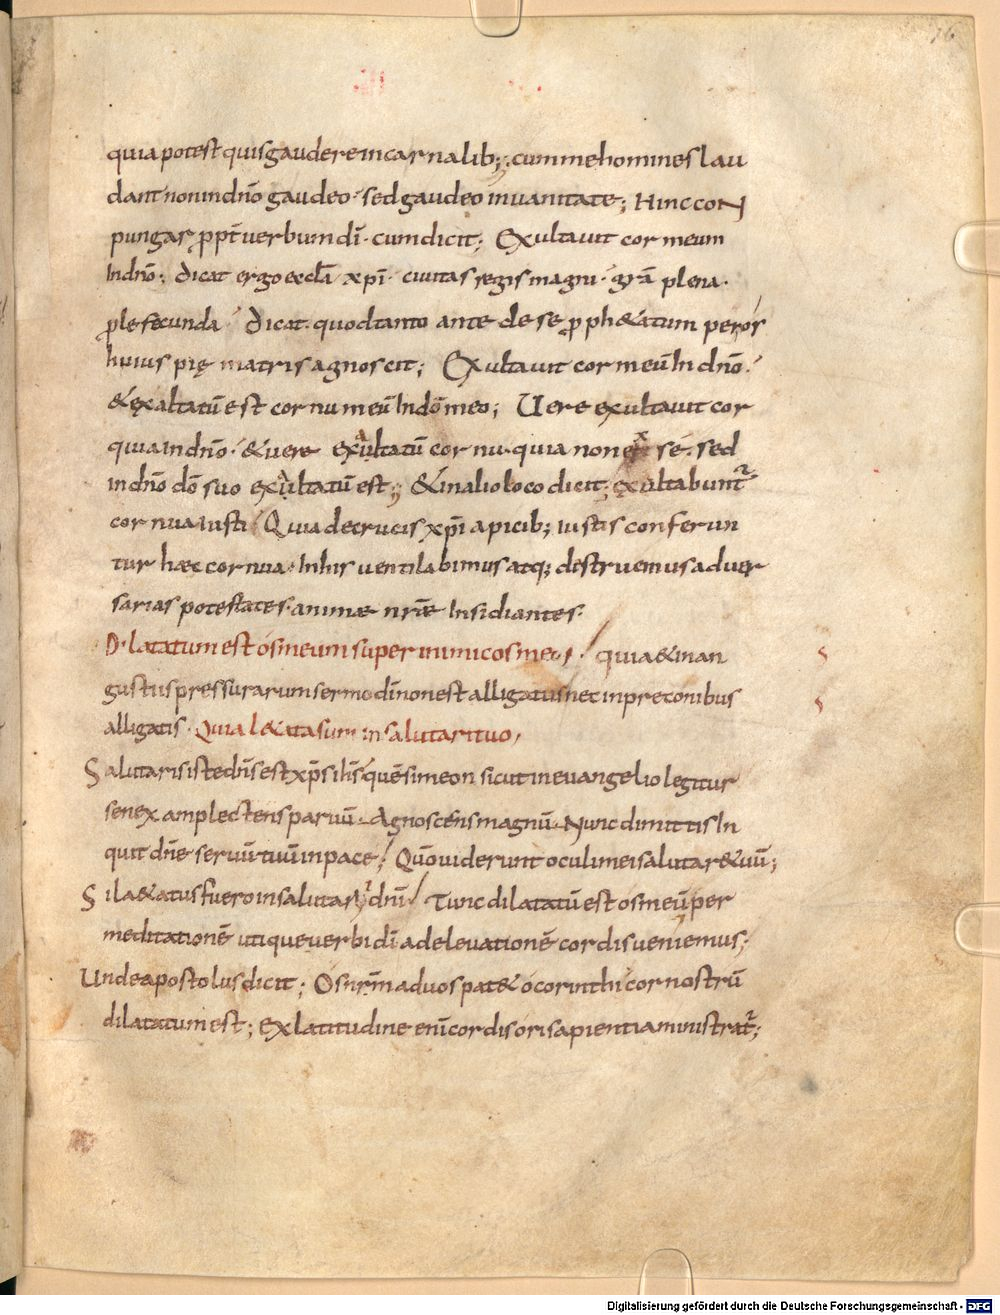 quia potest quis gaudere in carnalib; cum me homines lau
dant non in dn̄o gaudeo· sed gaudeo in uanitate; Hinc con
pungar p̄pt̄ uerbum dī· cum dicit; Exultauit cor meum
In dn̄o; dicat ergo eccl̄a xp̄i· ciuitas regis magni· gr̄a plena·
ꝓle fecunda· dicat· quod tanto ante de se ꝓph&atum per ós
huius pię matris agnoscit; Exultauit cor meū In dn̄o·
& exaltatū est cornu meū In dō meo; Uere exultauit cor
quia in dn̄o· & uere exaltatū cornu· quia non sé· sed
in dn̄o dō suo exaltatū est; & in alio loco dicit; exaltabunt᷑
cornua iusti Quia de crucis xp̄i apicib; iustis conferun
tur hæc cornua· In his uentilabimus atq; destruemus aduer
sarias potestates· animæ nr̄æ Insidiantes·
Dilatatum est ós meum super inimicos meos· quia & in an
gustiis pressurarum sermo dī non est alligatus nec in preconibus
alligatis· Quia l&ata sum in salutari tuo,
Salutaris iste dn̄s est xp̄s ih̄s quē simeon sicut in euangelio legitur
senex amplectens paruū· Agnoscens magnū· Nunc dimittis In
quit dn̄e seruū tuū in pace; Qūo uiderunt oculi mei salutare tuū;
Si la&atus fuero in salutari dn̄i Tunc dilatatū est os meū per
meditationē utique uerbi dī ad eleuationē cordis ueniemus;
Unde apostolus dicit; Os nr̄m ad uos pat& o corinthi cor nostrū
dilatatum est; ex latitudine enī cordis ori sapientia ministrat᷑;
Digitalisierung gefördert durch die Deutsche Forschungsgemeinschaft - DFG